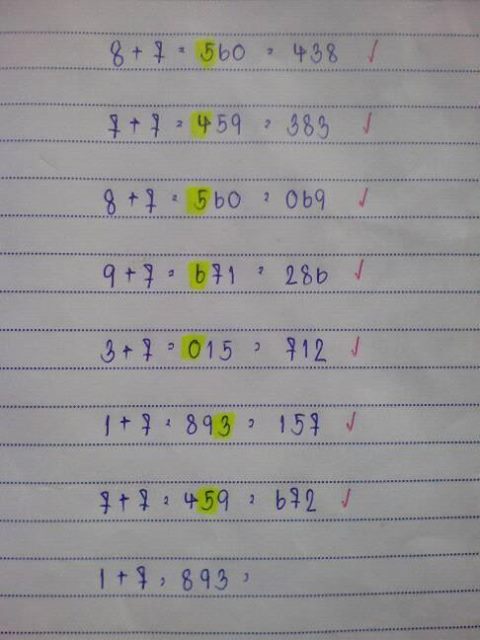 8 + 7 = 560 = 438 ✓
7 + 7 = 459 = 383 ✓
8 + 7 = 560 = 069 ✓
9 + 7 = 671 = 286 ✓
3 + 7 = 015 = 712 ✓
1 + 7 = 893 = 157 ✓
7 + 7 = 459 = 672 ✓
1 + 7 = 893 =